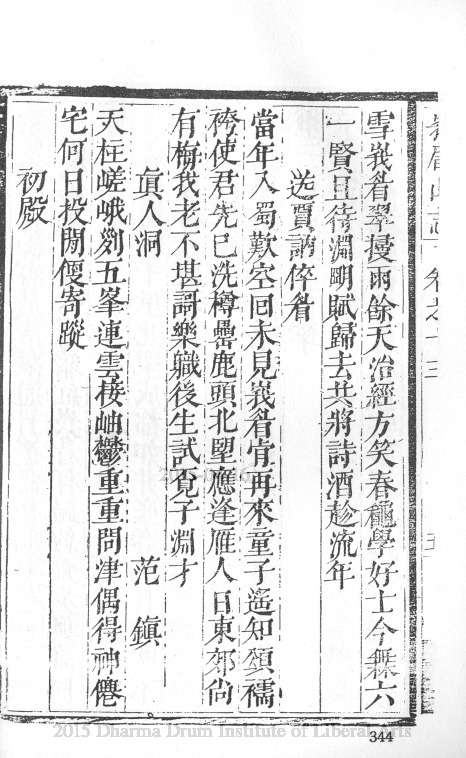 峩眉山志 卷之十三 五
雪峩眉翠擾雨餘天治經方笑春龝學好士今橆六
一賢且待淵明賦歸去共將詩酒趁流年
送賈訥倅眉
當年入蜀歎空回未見峩眉肯再來童子遙知頌襦
袴使君先已洗樽罍鹿頭北望應逢雁人日東郊尚
有梅我老不堪謌樂職後生試覓子淵才
真人洞 范鎮
天柱嵯峨剡五峯連雲棧岫欝重重問津偶得神僊
宅何日投閒便寄蹤
初殿
2015 Dharma Drum Institute of Liberal Arts
344